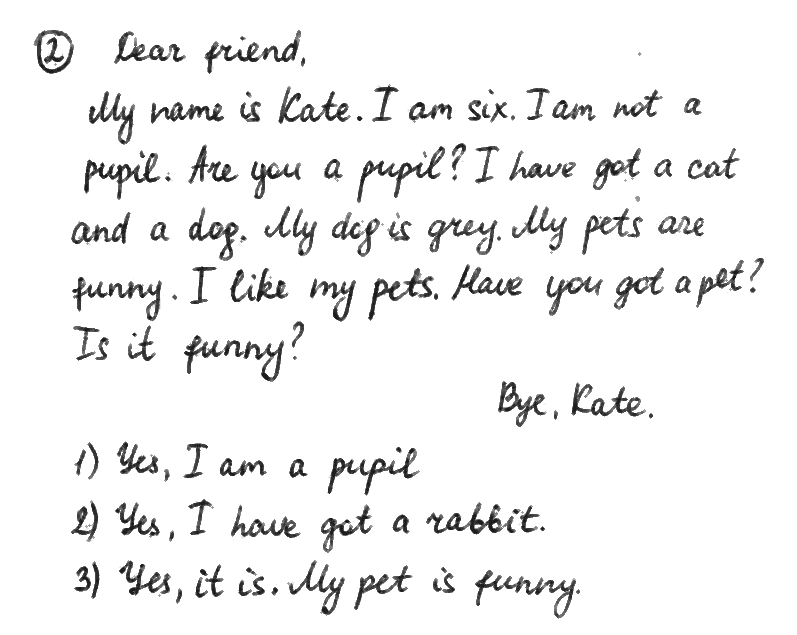 ② Dear friend,
My name is Kate. I am six. I am not a
pupil. Are you a pupil? I have got a cat
and a dog. My dog is grey. My pets are
funny. I like my pets. Have you got a pet?
Is it funny?
Bye, Kate.
1) Yes, I am a pupil
2) Yes, I have got a rabbit.
3) Yes, it is. My pet is funny.